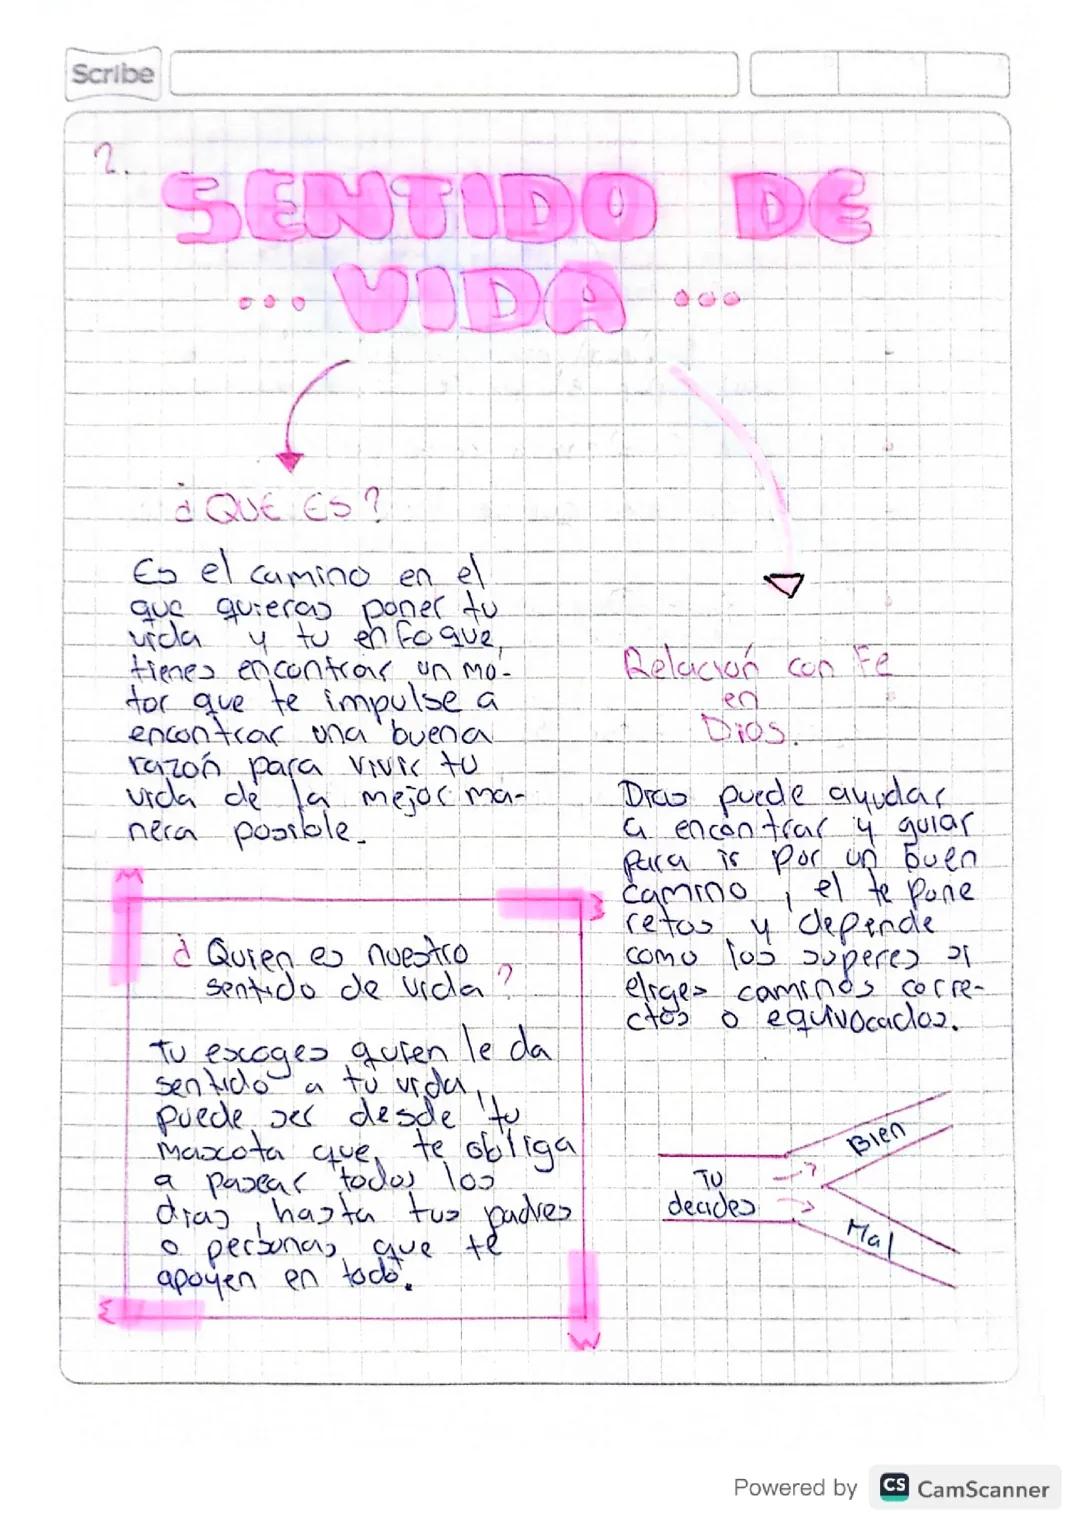 Scribe
2.
SENTIDO DE
... VIDA ...
¿QUE ES?
Es el camino en el
que quieras poner tu
vida y tu enfoque,
tienes encontrar un mo-
tor que te impulse a
encontrar una buena
razón para vivir tu
vida de la mejor ma-
nera posible.
¿Quien es nuestro
sentido de vida?
Tu escoges quien le da
sentido a tu vida,
puede ser desde tu
mascota que te obliga
a pasear todos los
dias, hasta tus padres
o personas que te
apoyen en todo.
Relación con Fe
en
Dios.
Dios puede ayudar
a encontrar y guiar
para ir por un buen
camino, el te pone
retos y depende
como los superes si
eliges caminos corre-
ctos o equivocados.
Bien
Tu
decides
Mal
Powered by CS CamScanner